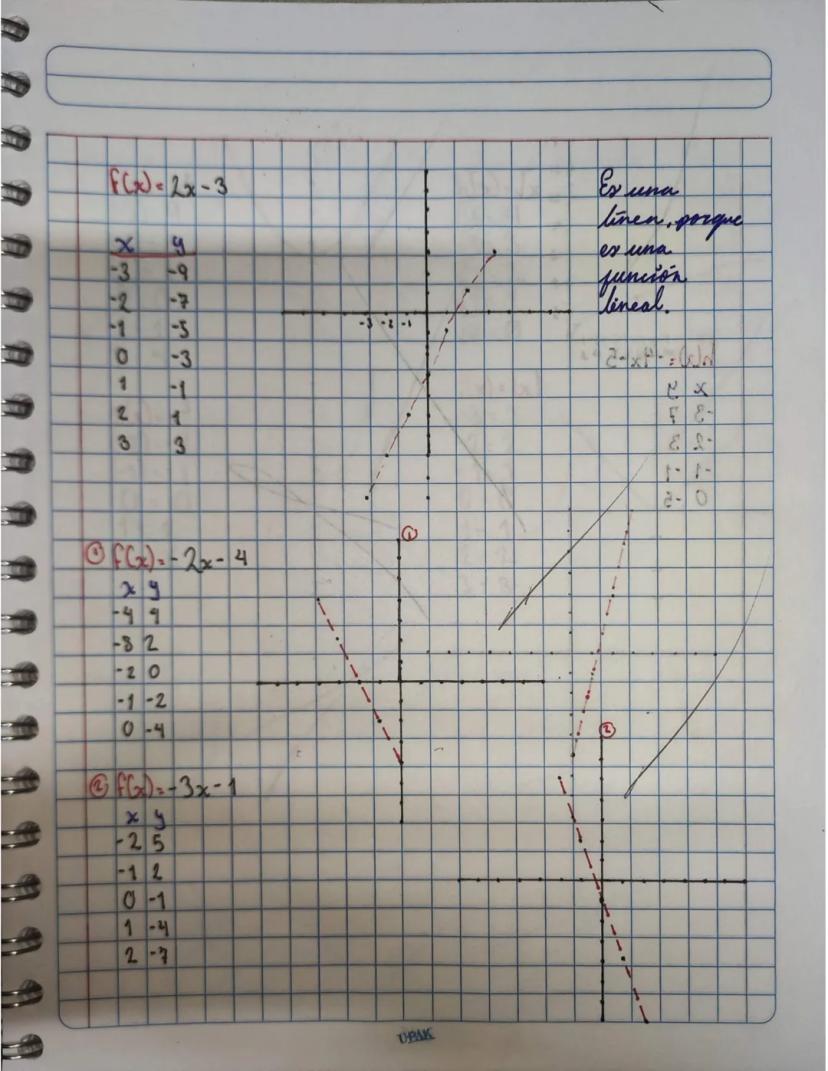 f(x)=2x-3
x y
-3 -9
-2 -7
-1 -5
0 -3
1 -1
2 1
3 3
-3 -2 -1
Es una
línea, porque
es una
función
lineal.
h(x)=-4x-5
x y
-3 7
-2 3
-1 -1
0 -5
① f(x)=-2x-4
x y
-4 4
-3 2
-2 0
-1 -2
0 -4
①
② f(x)=-3x-1
x y
-2 5
-1 2
0 -1
1 -4
2 -7
②